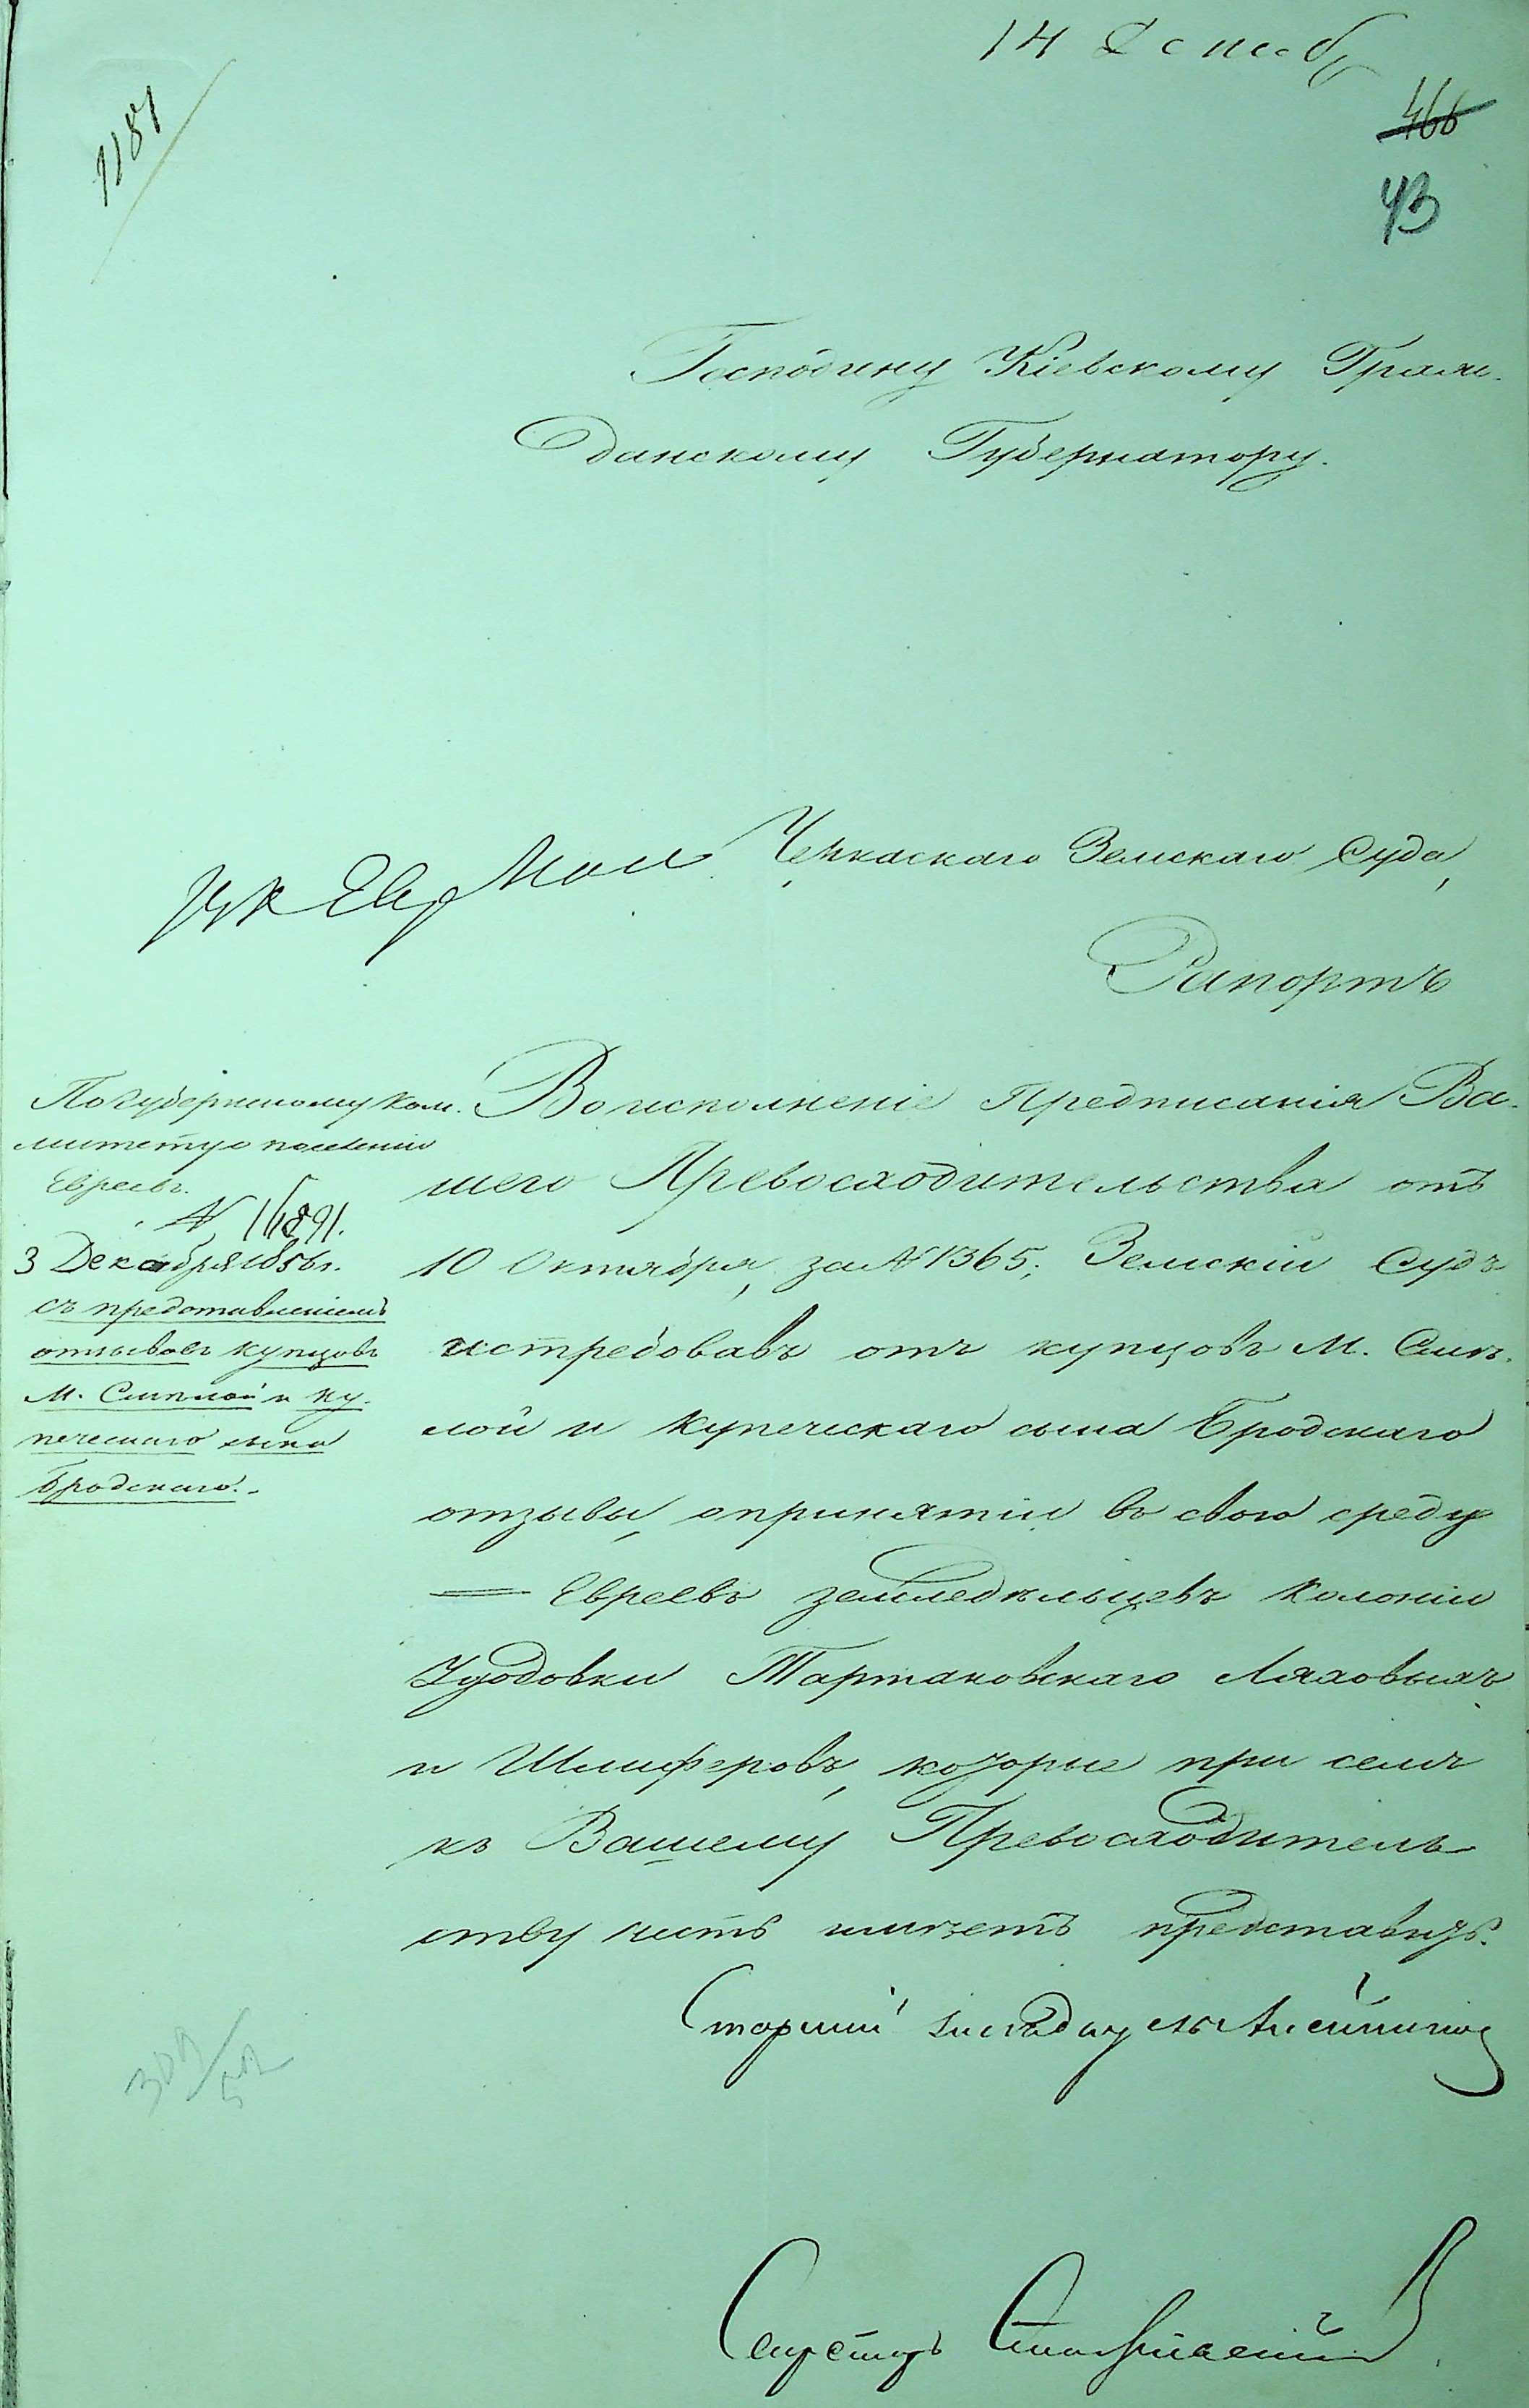 14 Декаб
1181
466
43
Господину Кіевскому Граж-
данскому Губернатору.
Черкаскаго Земскаго Суда,
Рапортъ
По губернскому ком-
митету о поселеніи
Евреевъ.
N 16891.
3 Декабря 1856 г.
съ представленіемъ
отзывовъ купцовъ
М. Смѣлой и ку-
печескаго сына
Бродскаго.
Во исполненіе Предписанія Ва-
шего Превосходительства отъ
10 Октября, за N 1365, Земскій Судъ
истребовавъ отъ купцовъ М. Смѣ-
лой и купеческаго сына Бродскаго
отзывы, о принятіи въ свою среду
Евреевъ земледѣльцевъ Колоніи
Тартаковскаго Ляховыхъ
и Шлиферовъ, которые при семъ
къ Вашему Превосходитель
ству честь имѣетъ представить.
Старшій
Секретарь